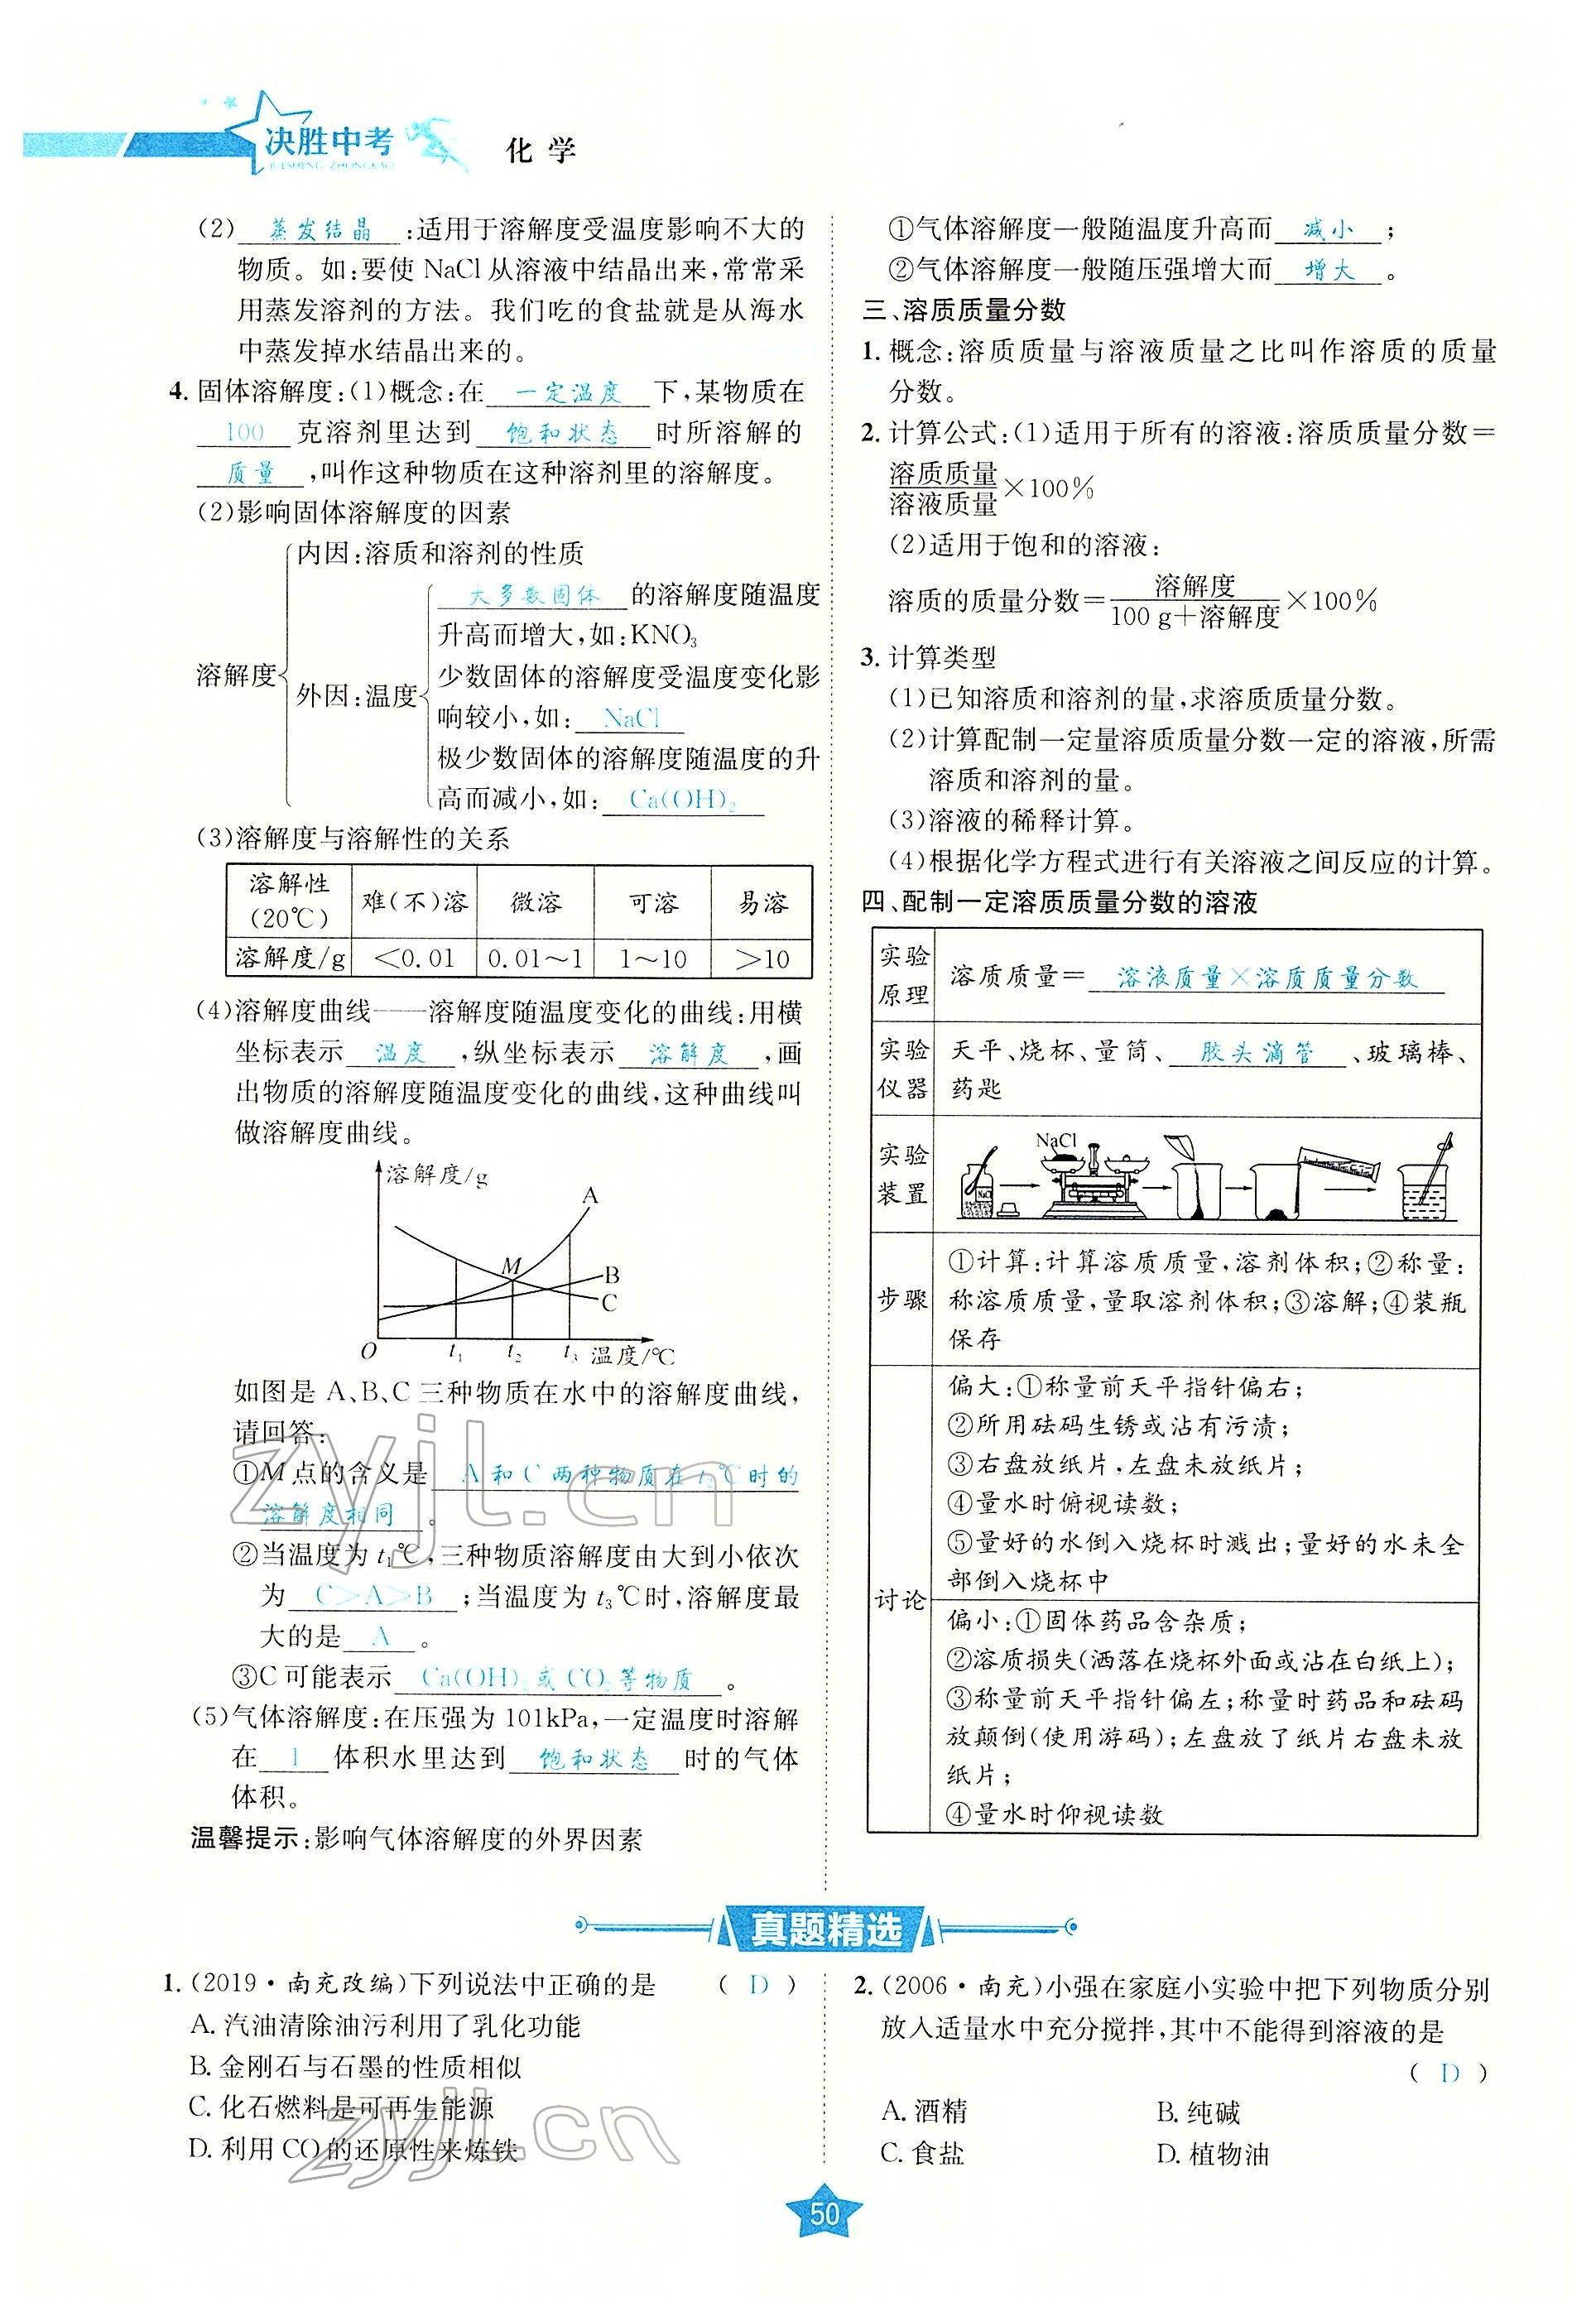 决胜中考
JUESHENG ZHONGKAO
化学
(2) 蒸发结晶 :适用于溶解度受温度影响不大的
物质。如:要使 NaCl 从溶液中结晶出来,常常采
用蒸发溶剂的方法。我们吃的食盐就是从海水
中蒸发掉水结晶出来的。
4. 固体溶解度:(1)概念:在 一定温度 下,某物质在
100 克溶剂里达到 饱和状态 时所溶解的
质量 ,叫作这种物质在这种溶剂里的溶解度。
(2)影响固体溶解度的因素
内因:溶质和溶剂的性质
大多数固体 的溶解度随温度
升高而增大,如:KNO₃
溶解度
外因:温度
少数固体的溶解度受温度变化影
响较小,如: NaCl
极少数固体的溶解度随温度的升
高而减小,如: Ca(OH)₂
(3)溶解度与溶解性的关系
溶解性(20℃) 难(不)溶 微溶 可溶 易溶
溶解度/g <0.01 0.01～1 1～10 >10
(4)溶解度曲线——溶解度随温度变化的曲线:用横
坐标表示 温度 ,纵坐标表示 溶解度 ,画
出物质的溶解度随温度变化的曲线,这种曲线叫
做溶解度曲线。
溶解度/g
A
M
B
C
O t₁ t₂ t₃ 温度/℃
如图是 A、B、C 三种物质在水中的溶解度曲线,
请回答:
①M 点的含义是 A 和 C 两种物质在 t₂℃时的
溶解度相同 。
②当温度为 t₁℃,三种物质溶解度由大到小依次
为 C>A>B ;当温度为 t₃℃时,溶解度最
大的是 A 。
③C 可能表示 Ca(OH)₂或 CO₂等物质 。
(5)气体溶解度:在压强为 101kPa,一定温度时溶解
在 1 体积水里达到 饱和状态 时的气体
体积。
温馨提示:影响气体溶解度的外界因素
①气体溶解度一般随温度升高而 减小 ;
②气体溶解度一般随压强增大而 增大 。
三、溶质质量分数
1. 概念:溶质质量与溶液质量之比叫作溶质的质量
分数。
2. 计算公式:(1)适用于所有的溶液:溶质质量分数=
溶质质量/溶液质量×100%
(2)适用于饱和的溶液:
溶质的质量分数=溶解度/100 g+溶解度×100%
3. 计算类型
(1)已知溶质和溶剂的量,求溶质质量分数。
(2)计算配制一定量溶质质量分数一定的溶液,所需
溶质和溶剂的量。
(3)溶液的稀释计算。
(4)根据化学方程式进行有关溶液之间反应的计算。
四、配制一定溶质质量分数的溶液
实验原理 溶质质量= 溶液质量×溶质质量分数
实验仪器 天平、烧杯、量筒、 胶头滴管 、玻璃棒、
药匙
实验装置 NaCl NaCl
步骤
①计算:计算溶质质量,溶剂体积;②称量:
称溶质质量,量取溶剂体积;③溶解;④装瓶
保存
讨论
偏大:①称量前天平指针偏右;
②所用砝码生锈或沾有污渍;
③右盘放纸片,左盘未放纸片;
④量水时俯视读数;
⑤量好的水倒入烧杯时溅出;量好的水未全
部倒入烧杯中
偏小:①固体药品含杂质;
②溶质损失(洒落在烧杯外面或沾在白纸上);
③称量前天平指针偏左;称量时药品和砝码
放颠倒(使用游码);左盘放了纸片右盘未放
纸片;
④量水时仰视读数
真题精选
1. (2019·南充改编)下列说法中正确的是 ( D )
A. 汽油清除油污利用了乳化功能
B. 金刚石与石墨的性质相似
C. 化石燃料是可再生能源
D. 利用 CO 的还原性来炼铁
2. (2006·南充)小强在家庭小实验中把下列物质分别
放入适量水中充分搅拌,其中不能得到溶液的是
( D )
A. 酒精 B. 纯碱
C. 食盐 D. 植物油
50
zyjl.cn
zyjl.cn